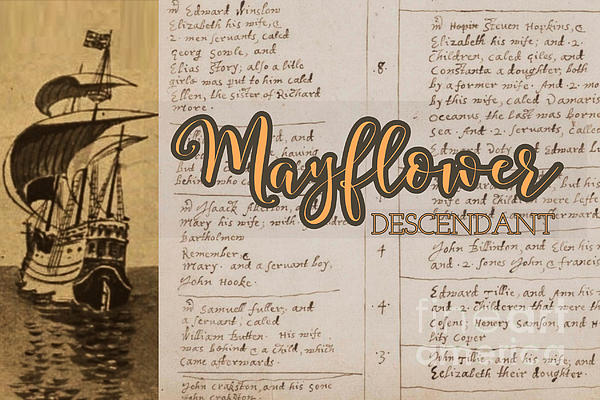 mr Edward Winslow
Elizabeth his wife, &
2. men servants, caled
Georg Sowle, and
Elias Story; also a litle
girle was put to him caled
Ellen, the sister of Richard
More.
and
having
but
behind who
mr Isaack Allerton, and
Mary his wife; with
Bartholmew
Remember, &
Mary. and a servant boy,
John Hooke.
mr Samuell fuller; and
a servant, caled
William Butten. His wife
was behind & a child, which
came afterwards.
John Crakston, and his sone
John Crakston
8.
4
.4.
.3.
mr Steven Hopkins, &
Elizabeth his wife; and .2.
Children, caled Giles, and
Constanta a doughter, both
by a former wife. And .2. mo
by this wife, caled Damaris
Oceanus, the last was borne
sea. And .2. servants, called
Edward Doty and Edward L
but his
wife and Children were lefte
afterward
John Billinton, and Elen his
and .2. sones John & francis
Edward Tillie, and Ann his
and .2. Children that were th
Cosens, Henery Samson, and H
lity Coper
John Tillie, and his wife; and
Eelizabeth their doughter.
Mayflower
DESCENDANT
fine art
america